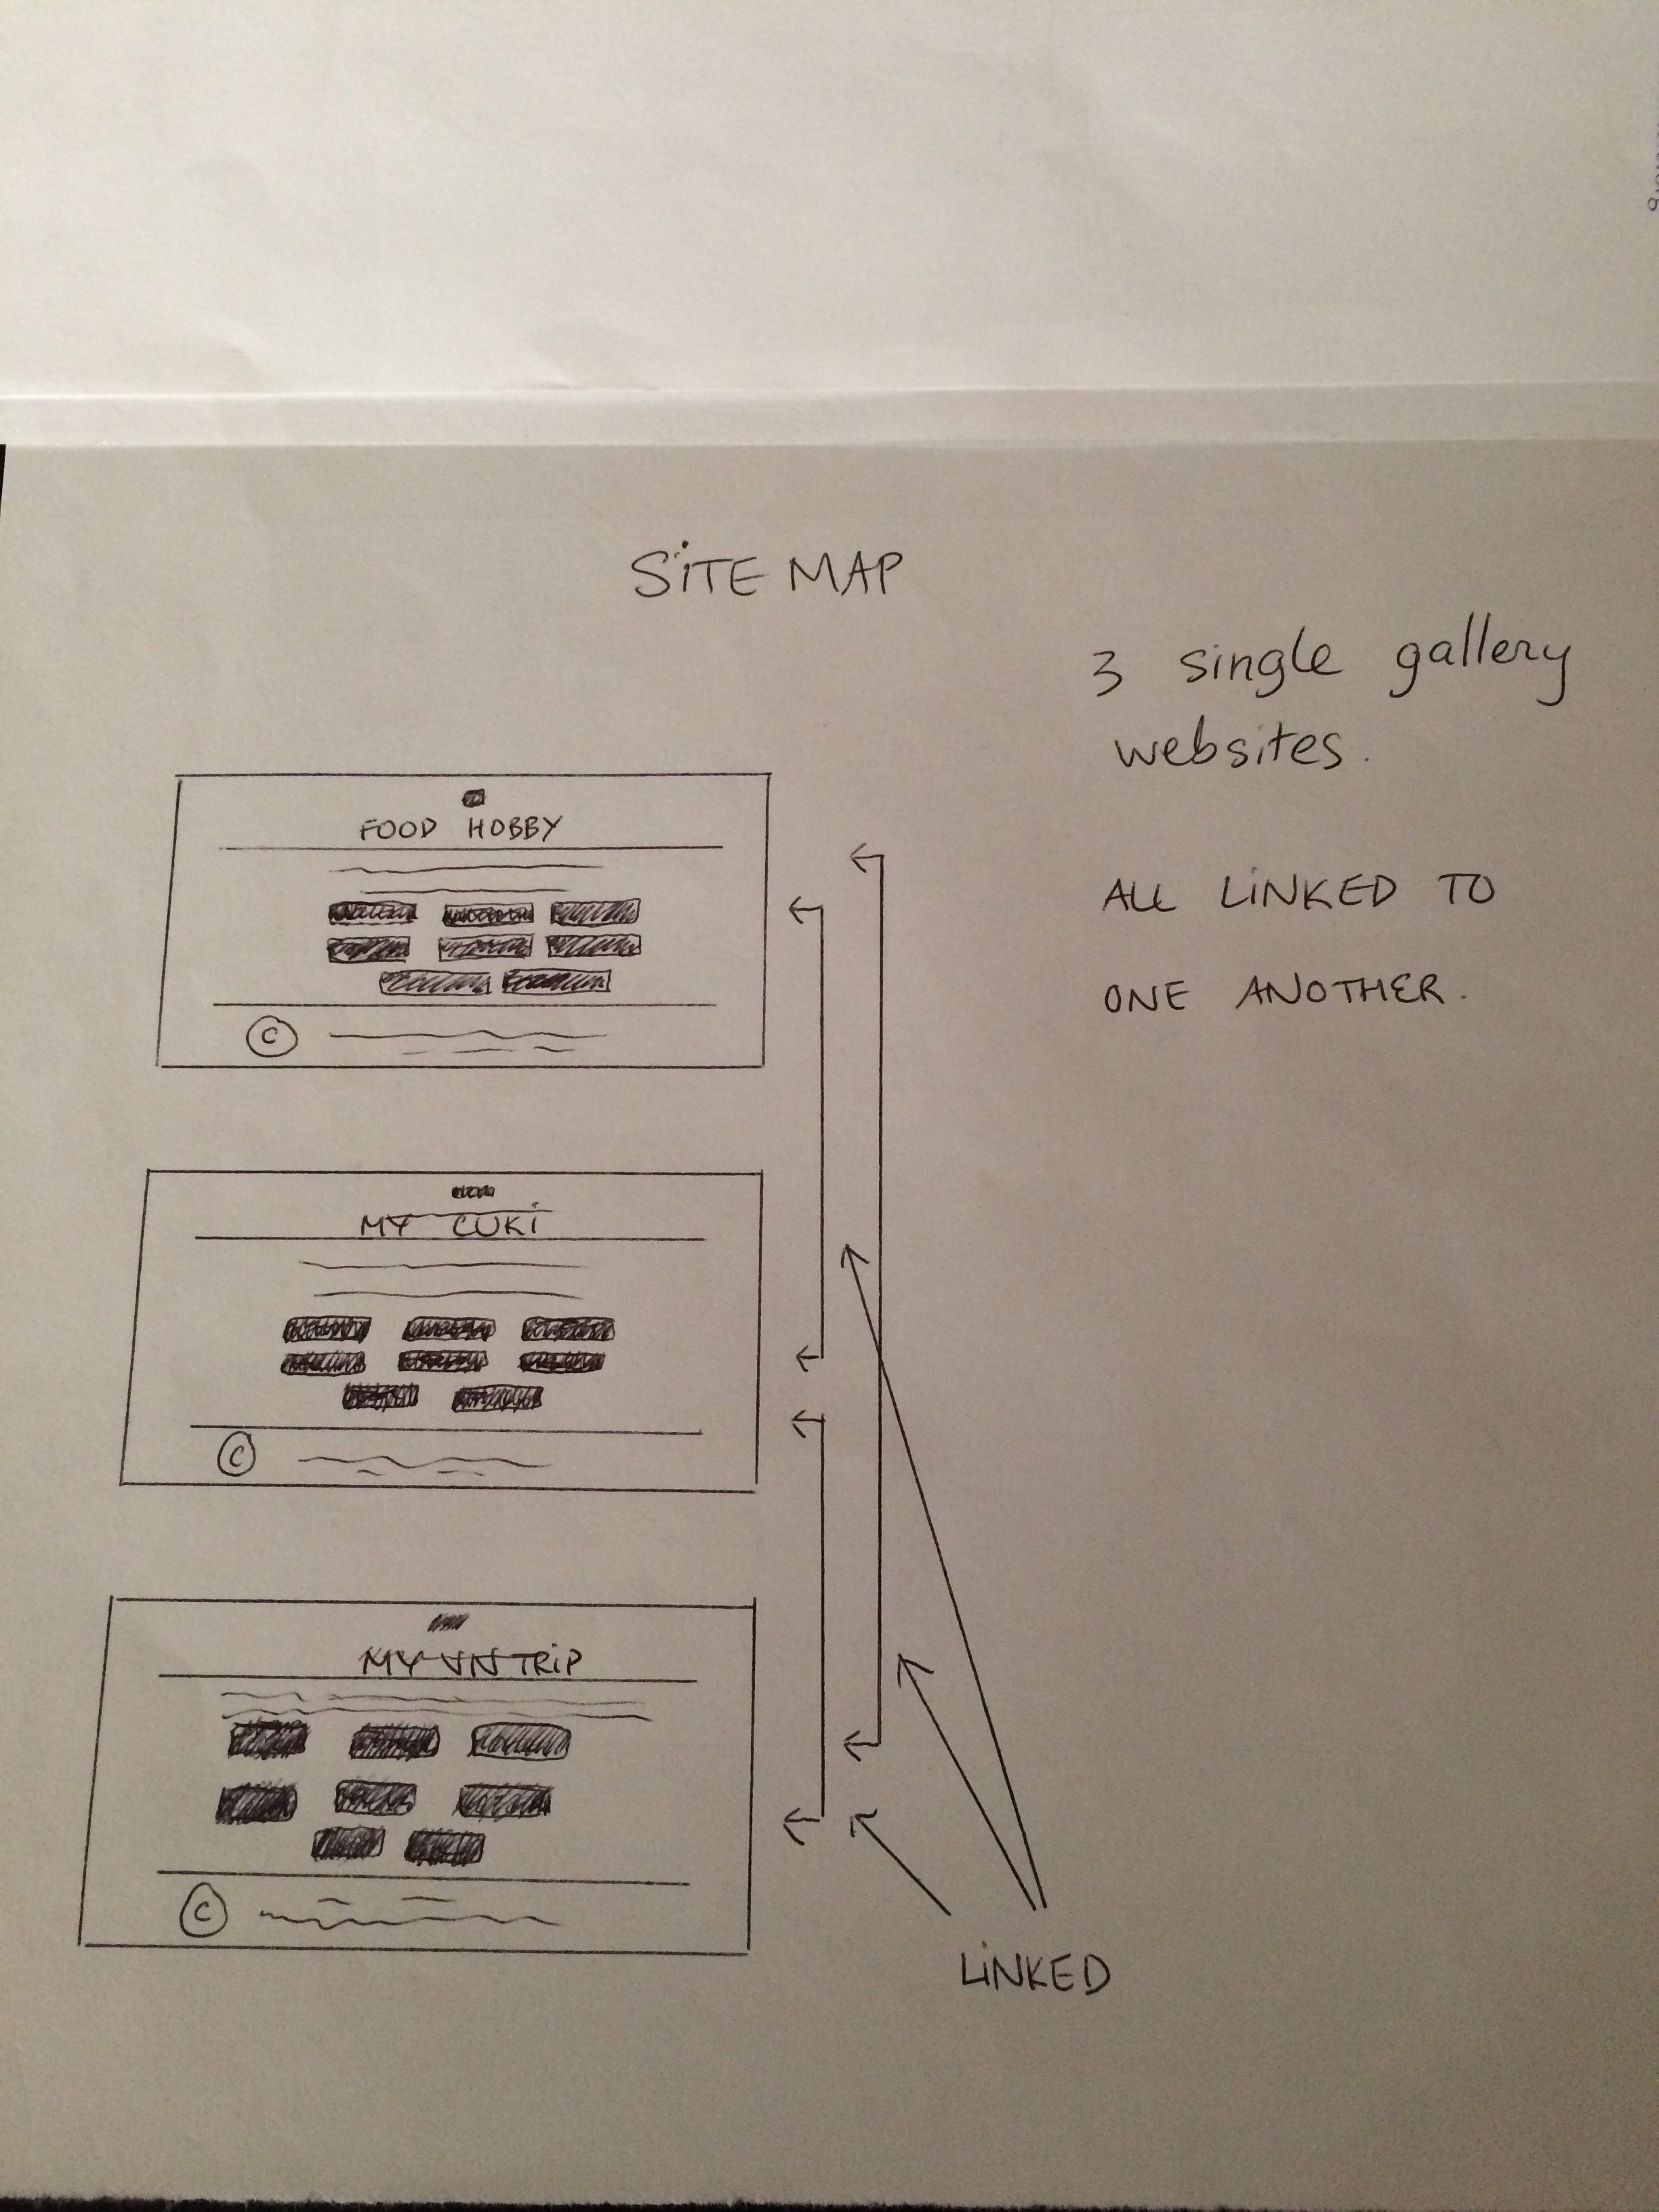 SiTE MAP
3 single gallery
websites.
ALL LiNKED TO
ONE ANOTHER.
FOOD HOBBY
©
MY CUKi
©
MY VN TRiP
©
LiNKED